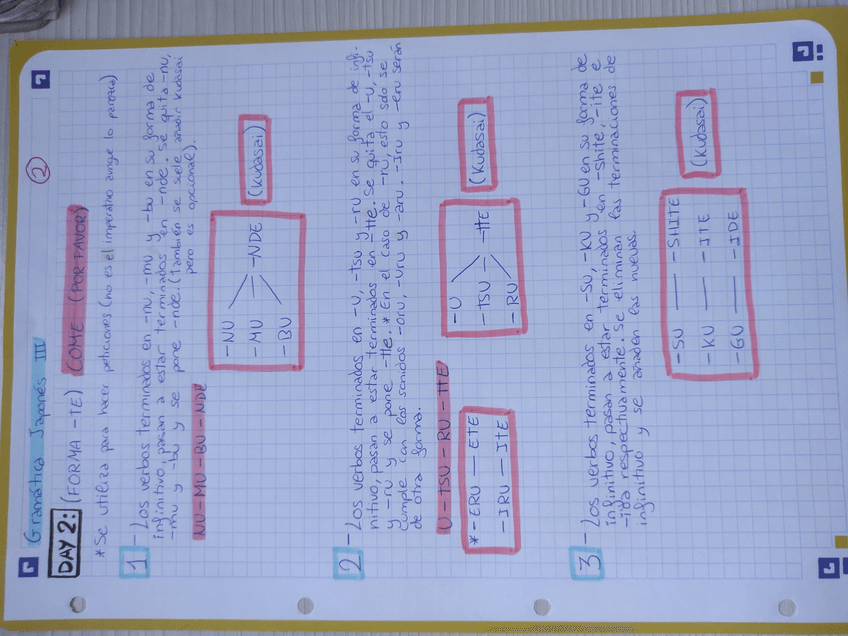 Gramática Japonés III
2
DAY 2: (FORMA -TE) COME (POR FAVOR)
*Se utiliza para hacer peticiones (no es el imperativo aunque lo parezca)
1 - Los verbos terminados en -nu, -mu y -bu en su forma de
infinitivo, pasan a estar terminados en -nde. Se quita -nu,
-mu y -bu y se pone -nde. (También se suele añadir Kudasai
pero es opcional).
NU-MU-BU-NDE
-NU
-MU — -NDE
-BU
(Kudasai)
2 - Los verbos terminados en -u, -tsu y -ru en su forma de infi-
nitivo, pasan a estar terminados en -tte. Se quita el -u, -tsu
y -ru y se pone -tte. *En el caso de -ru, esto solo se
cumple con los sonidos -oru, -uru y -aru. -Iru y -eru serán
de otra forma.
U-TSU-RU-TTE
-U
-TSU — -TTE
-RU
(Kudasai)
*-ERU — ETE
-IRU — ITE
3 - Los verbos terminados en -SU, -KU y -GU en su forma de
infinitivo, pasan a estar terminados en -Shite, -ite e
-ide respectivamente. Se eliminan las terminaciones de
infinitivo y se añaden las nuevas.
-SU — -SHITE
-KU — -ITE
-GU — -IDE
(Kudasai)